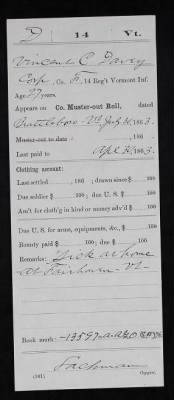 D 14 Vt.
Vincent C Davey
Corp., Co. F, 14 Reg't Vermont Inf.
Age 27 years.
Appears on Co. Muster-out Roll, dated
Brattleboro Vt July 30, 1863.
Muster-out to date , 186 .
Last paid to Apl 30, 1863.
Clothing account:
Last settled , 186 ; drawn since $ 100
Due soldier $ 100; due U. S. $ 100
Am't for cloth'g in kind or money adv'd $ 100
Due U. S. for arms, equipments, &c., $ 100
Bounty paid $ 100; due $ 100
Remarks: Sick at home
at Fairhaven Vt.
Book mark:
(361) Copyist.